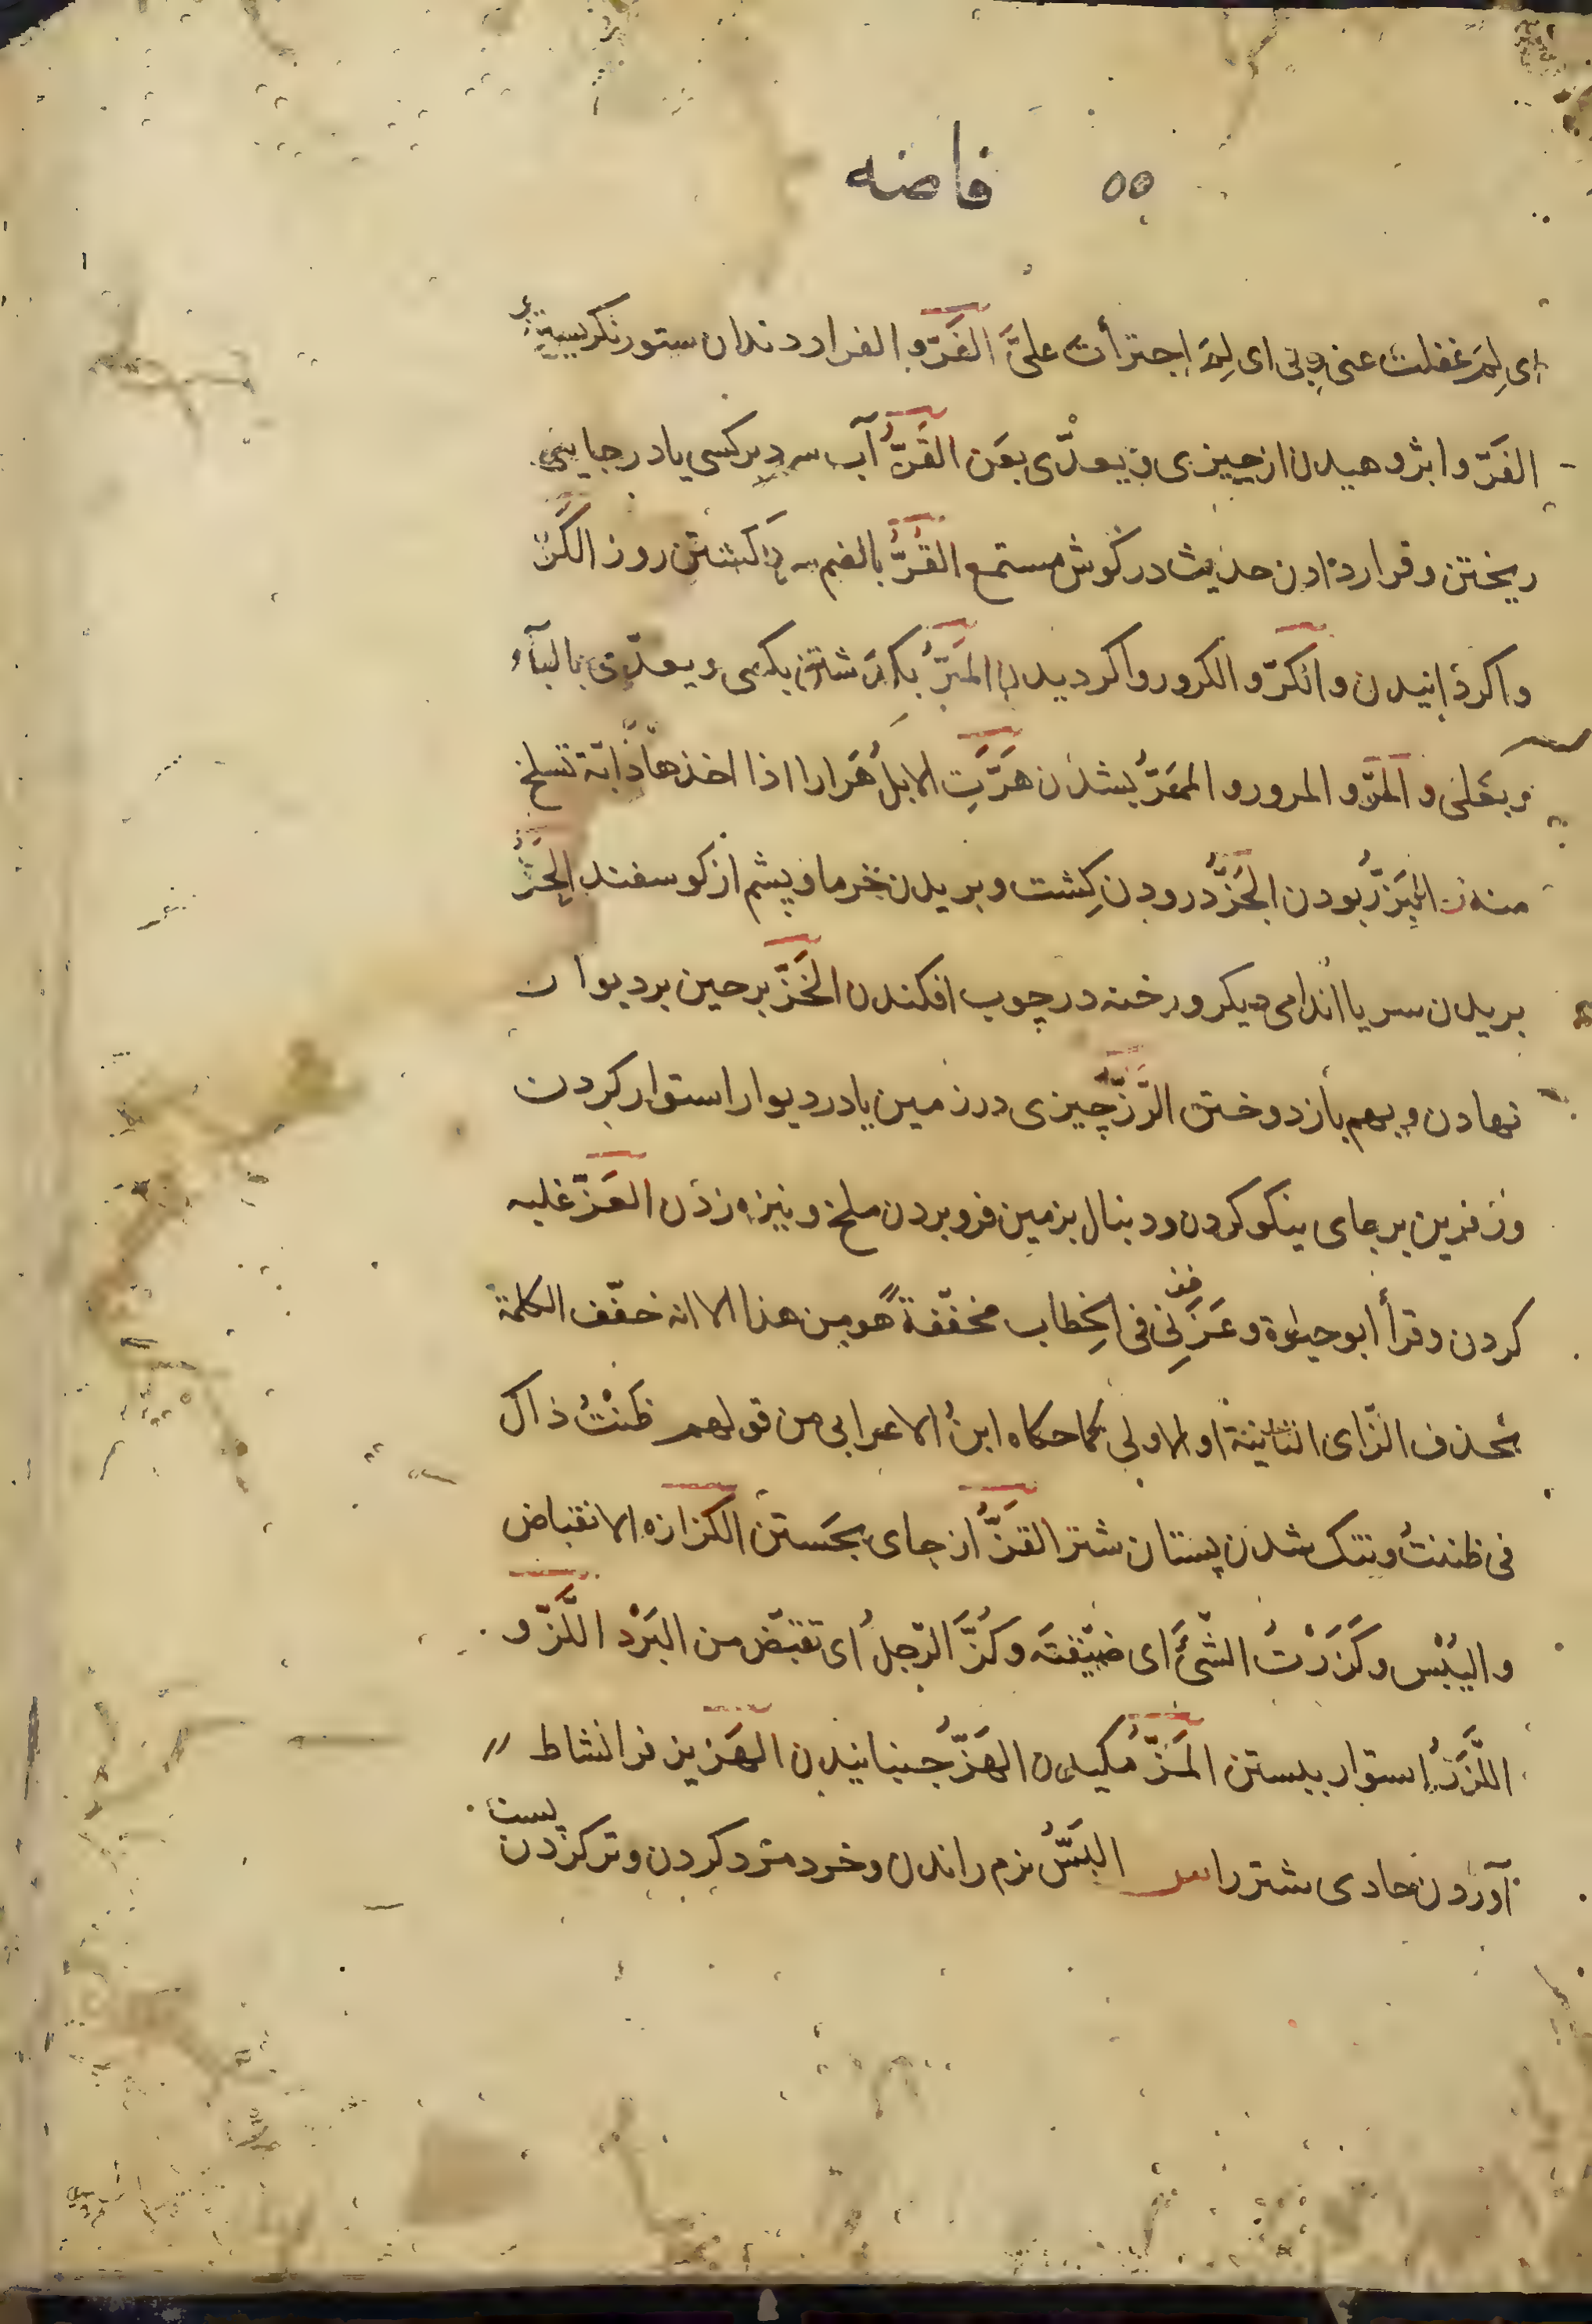 ٥٥ فاضه
ای لِمَ غفلت عنی وبی ای لِمَ اجترأت علیَّ الفَرّ و الفرار دندان ستور نکریستن
الفَرّ وابژوهیدن از چیزی ویعدّی بعَن القَرُّ آب سرد برکسی یا در جایی
ریختن وقرار دادن حذیث در کوش مستمع القُرُّ بالضم سرد کشتن روز الکَرّ
واکردانیدن و الکرّ و الکرور واکردیدن المَرُّ بکذشتن بکسی ویعدّی بالبآء
وبعَلی و المَرّ و المرور و الممَرّ بشذن هَرَّتِ الابلُ هَرارا اذا اخذها دابّة تسلخ
منه ز البَزُّ ربودن الجَزُّ درودن کِشت وبریدن خرما وپشم از کوسفند الحَزُّ
بریدن سر یا اندامی دیکر ورخنه در چوب افکندن الخَزّ برحین بر دیوار
نهادن وبهم باز دوختن الرَّزّ چیزی در زمین یا در دیوار استوار کردن
وزفرین بر جای ینکو کردن ودنبال بزمین فرو بردن ملخ ونیزه زدن العَزّ غلبه
کردن وقرأ ابو حیوة وعَزَنِی فی الخِطاب مخفّفةً هو من هذا الا انه خفّف الکلمة
بحذف الزّای الثانیة او الاولی کما حکاه ابنُ الاعرابی من قولهم ظَنْتُ ذاک
فی ظننتُ وتنک شدن پستان شتر القَزُّ از جای بجَستن الکزازه الانقباض
والیُبْس وکَزَزْتُ الشّئَ ای ضیّقتَه وکُزَّ الرّجلُ ای تقبّض من البَرْد اللَّزّ و
اللَّزَزُ استوار ببستن المَزُّ مکیدن الهَزُّ جنبانیدن الهَزیز فرا نشاط
آوردن حادی شتر را س البَسُّ نرم راندن وخرد مرد کردن وتر کردن پست